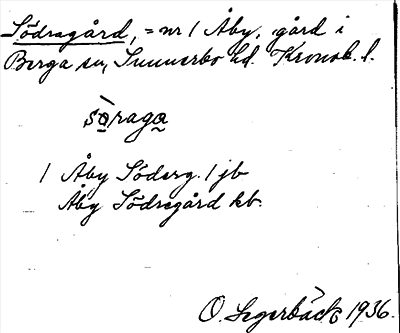 Södragård, = nr 1 Åby, gård i
Berga sn, Sunnerbo hd. Kronob. l.
sòraga
1 Åby Söderg. 1 jb
Åby Södregård kb.
O. Segerbäck 1936.